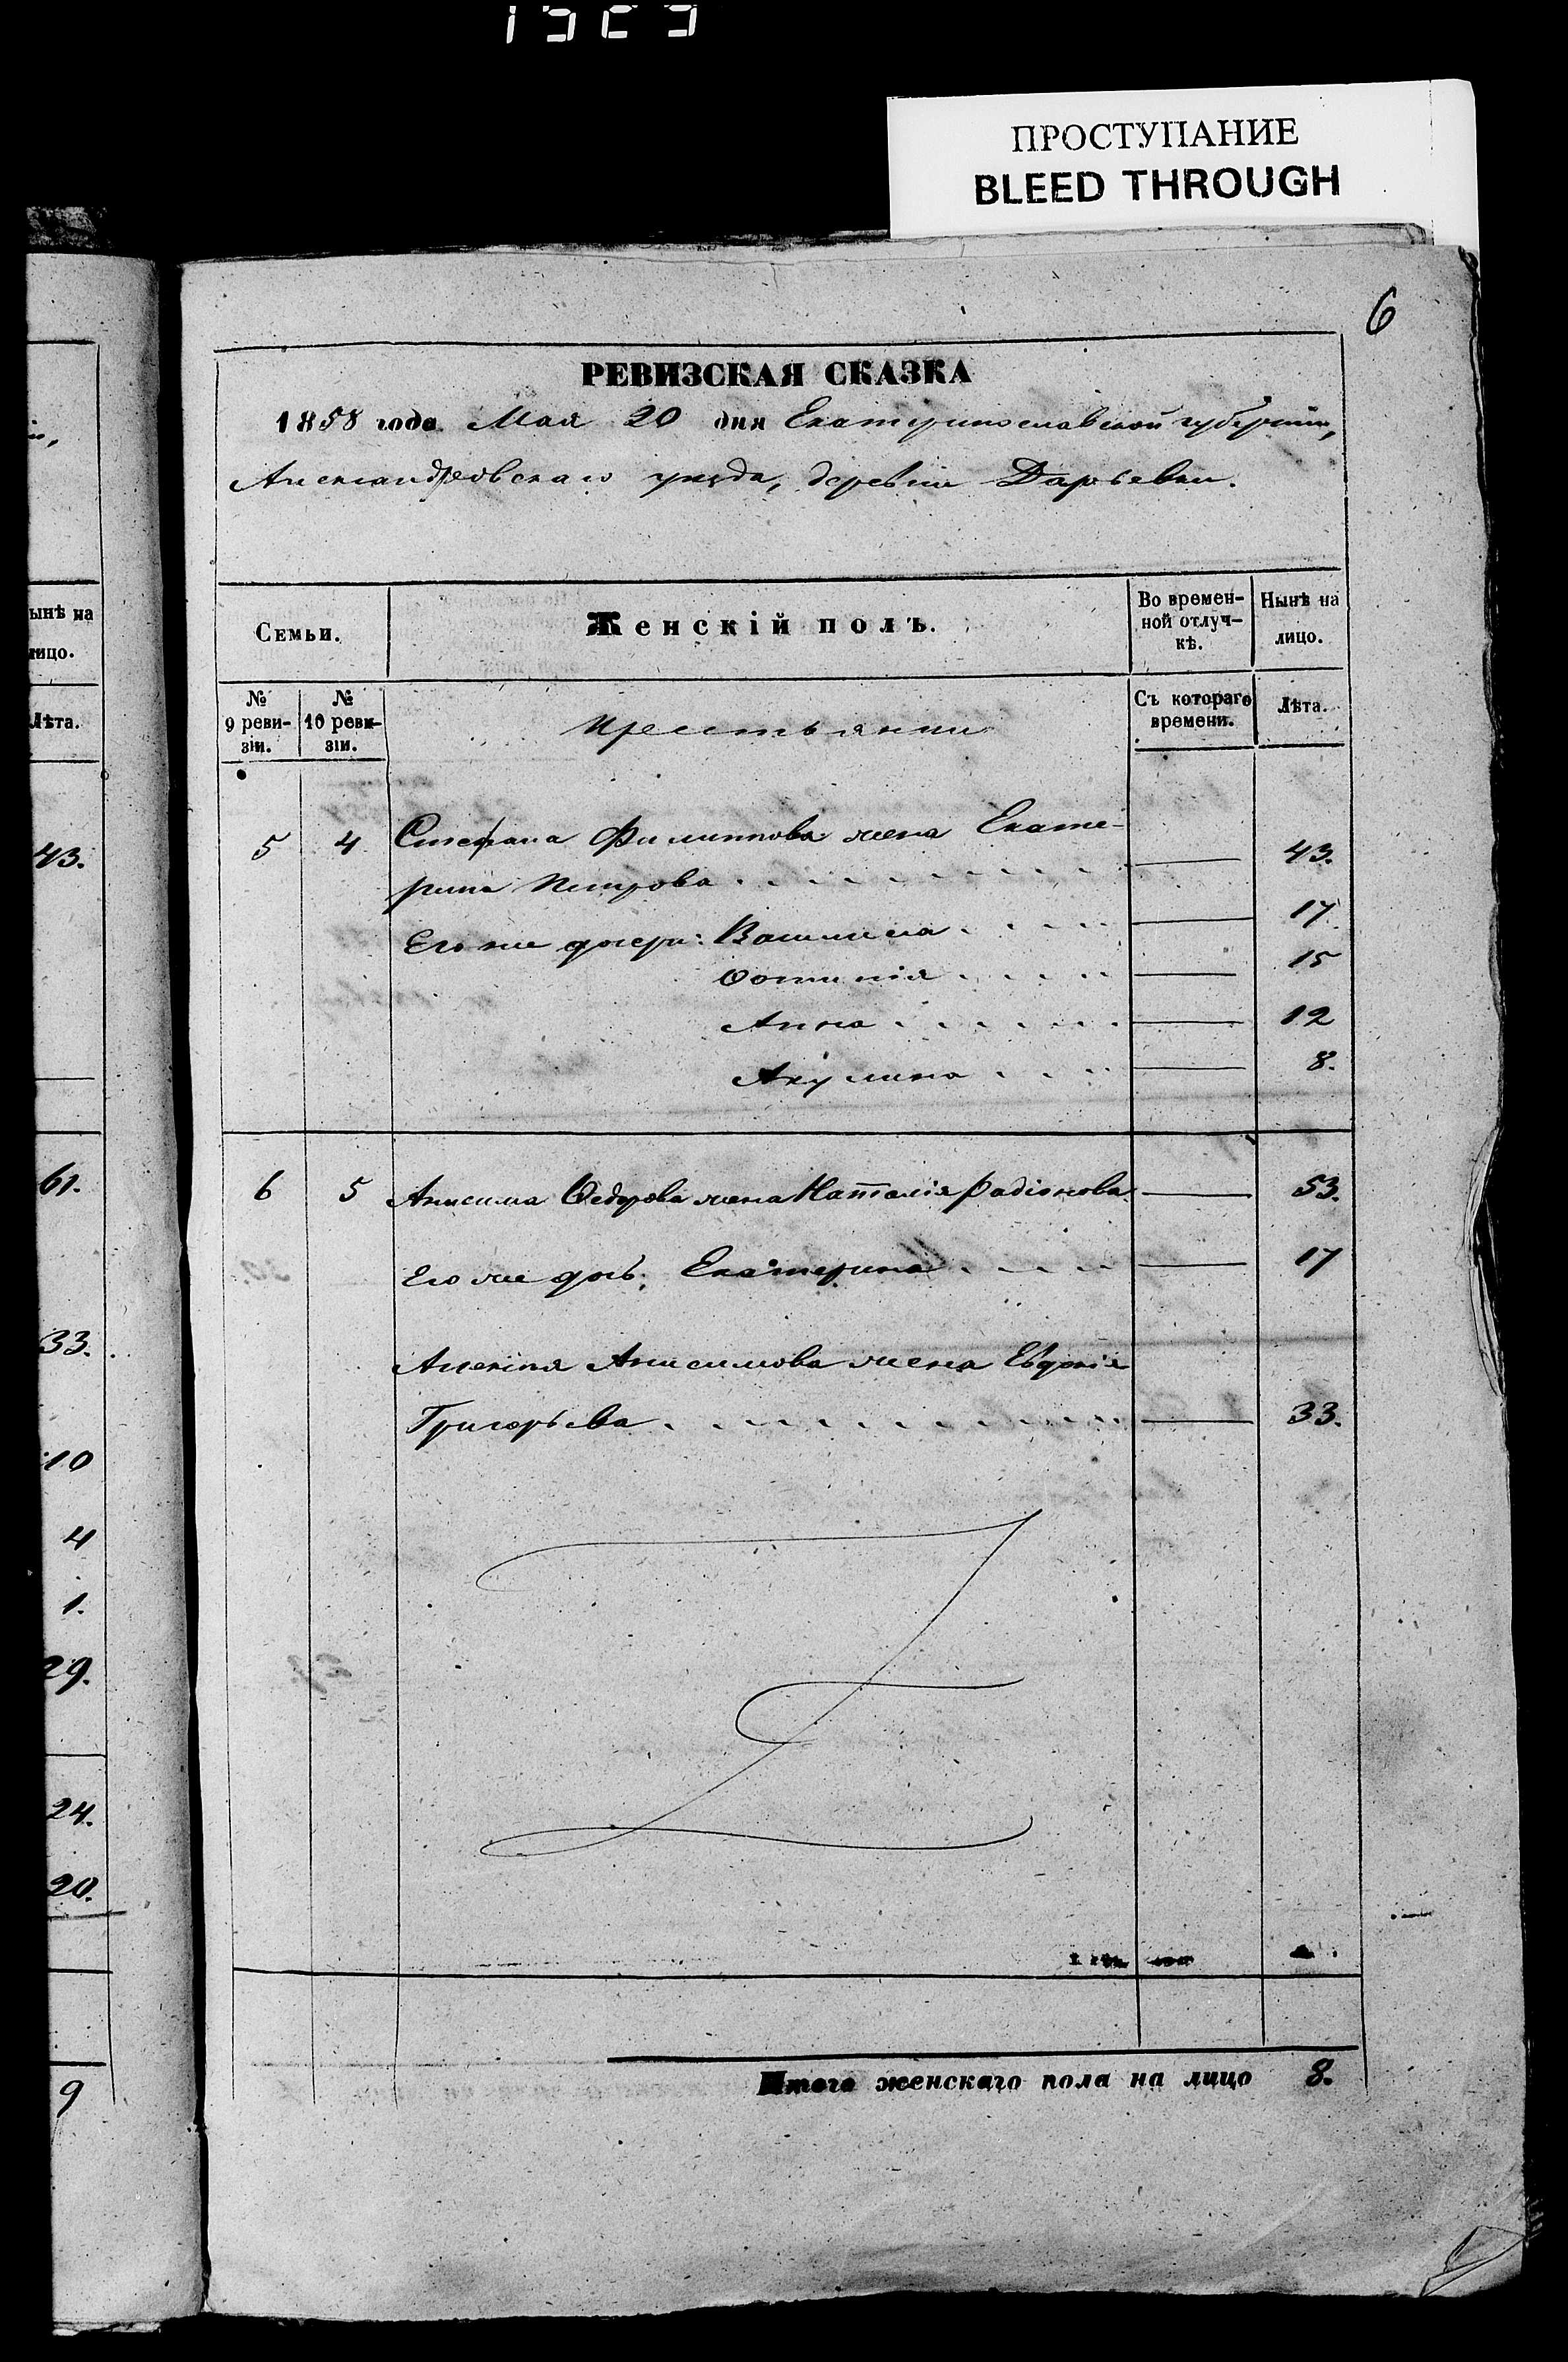 ПРОСТУПАНИЕ
BLEED THROUGH
6
РЕВИЗСКАЯ СКАЗКА
1858 года Мая 20 дня Екатеринославской губернии,
Александровскаго уѣзда, деревни Дарьевки.
Семьи.
Женскій полъ.
Во времен-
ной отлуч-
кѣ.
Нынѣ на
лицо.
№
9 реви-
зіи.
№
10 реви-
зіи.
Крестьянки
Съ котораго
времени.
Лѣта.
5 4 Стефана Филиппова жена Екате-
рина Петрова . . . . . . . . . — 43.
Его же дочери: Василиса . . . . — 17.
Фотинія . . . . — 15
Анна . . . . . — 12
Акулина . . . . — 8.
6 5 Анисима Федорова жена Наталія Радіонова — 53.
Его же дочь: Екатерина . . . . — 17
Алексѣя Анисимова жена Евдокія
Григорьева . . . . . . . . . . — 33.
Итого женскаго пола на лицо 8.
ынѣ на
лицо.
Лѣта.
43.
61.
33.
10
4
1.
29.
24.
20.
9